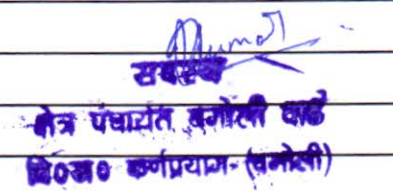 सदस्य
क्षेत्र पंचायत बमोली वार्ड
वि०ख० कर्णप्रयाग-(चमोली)